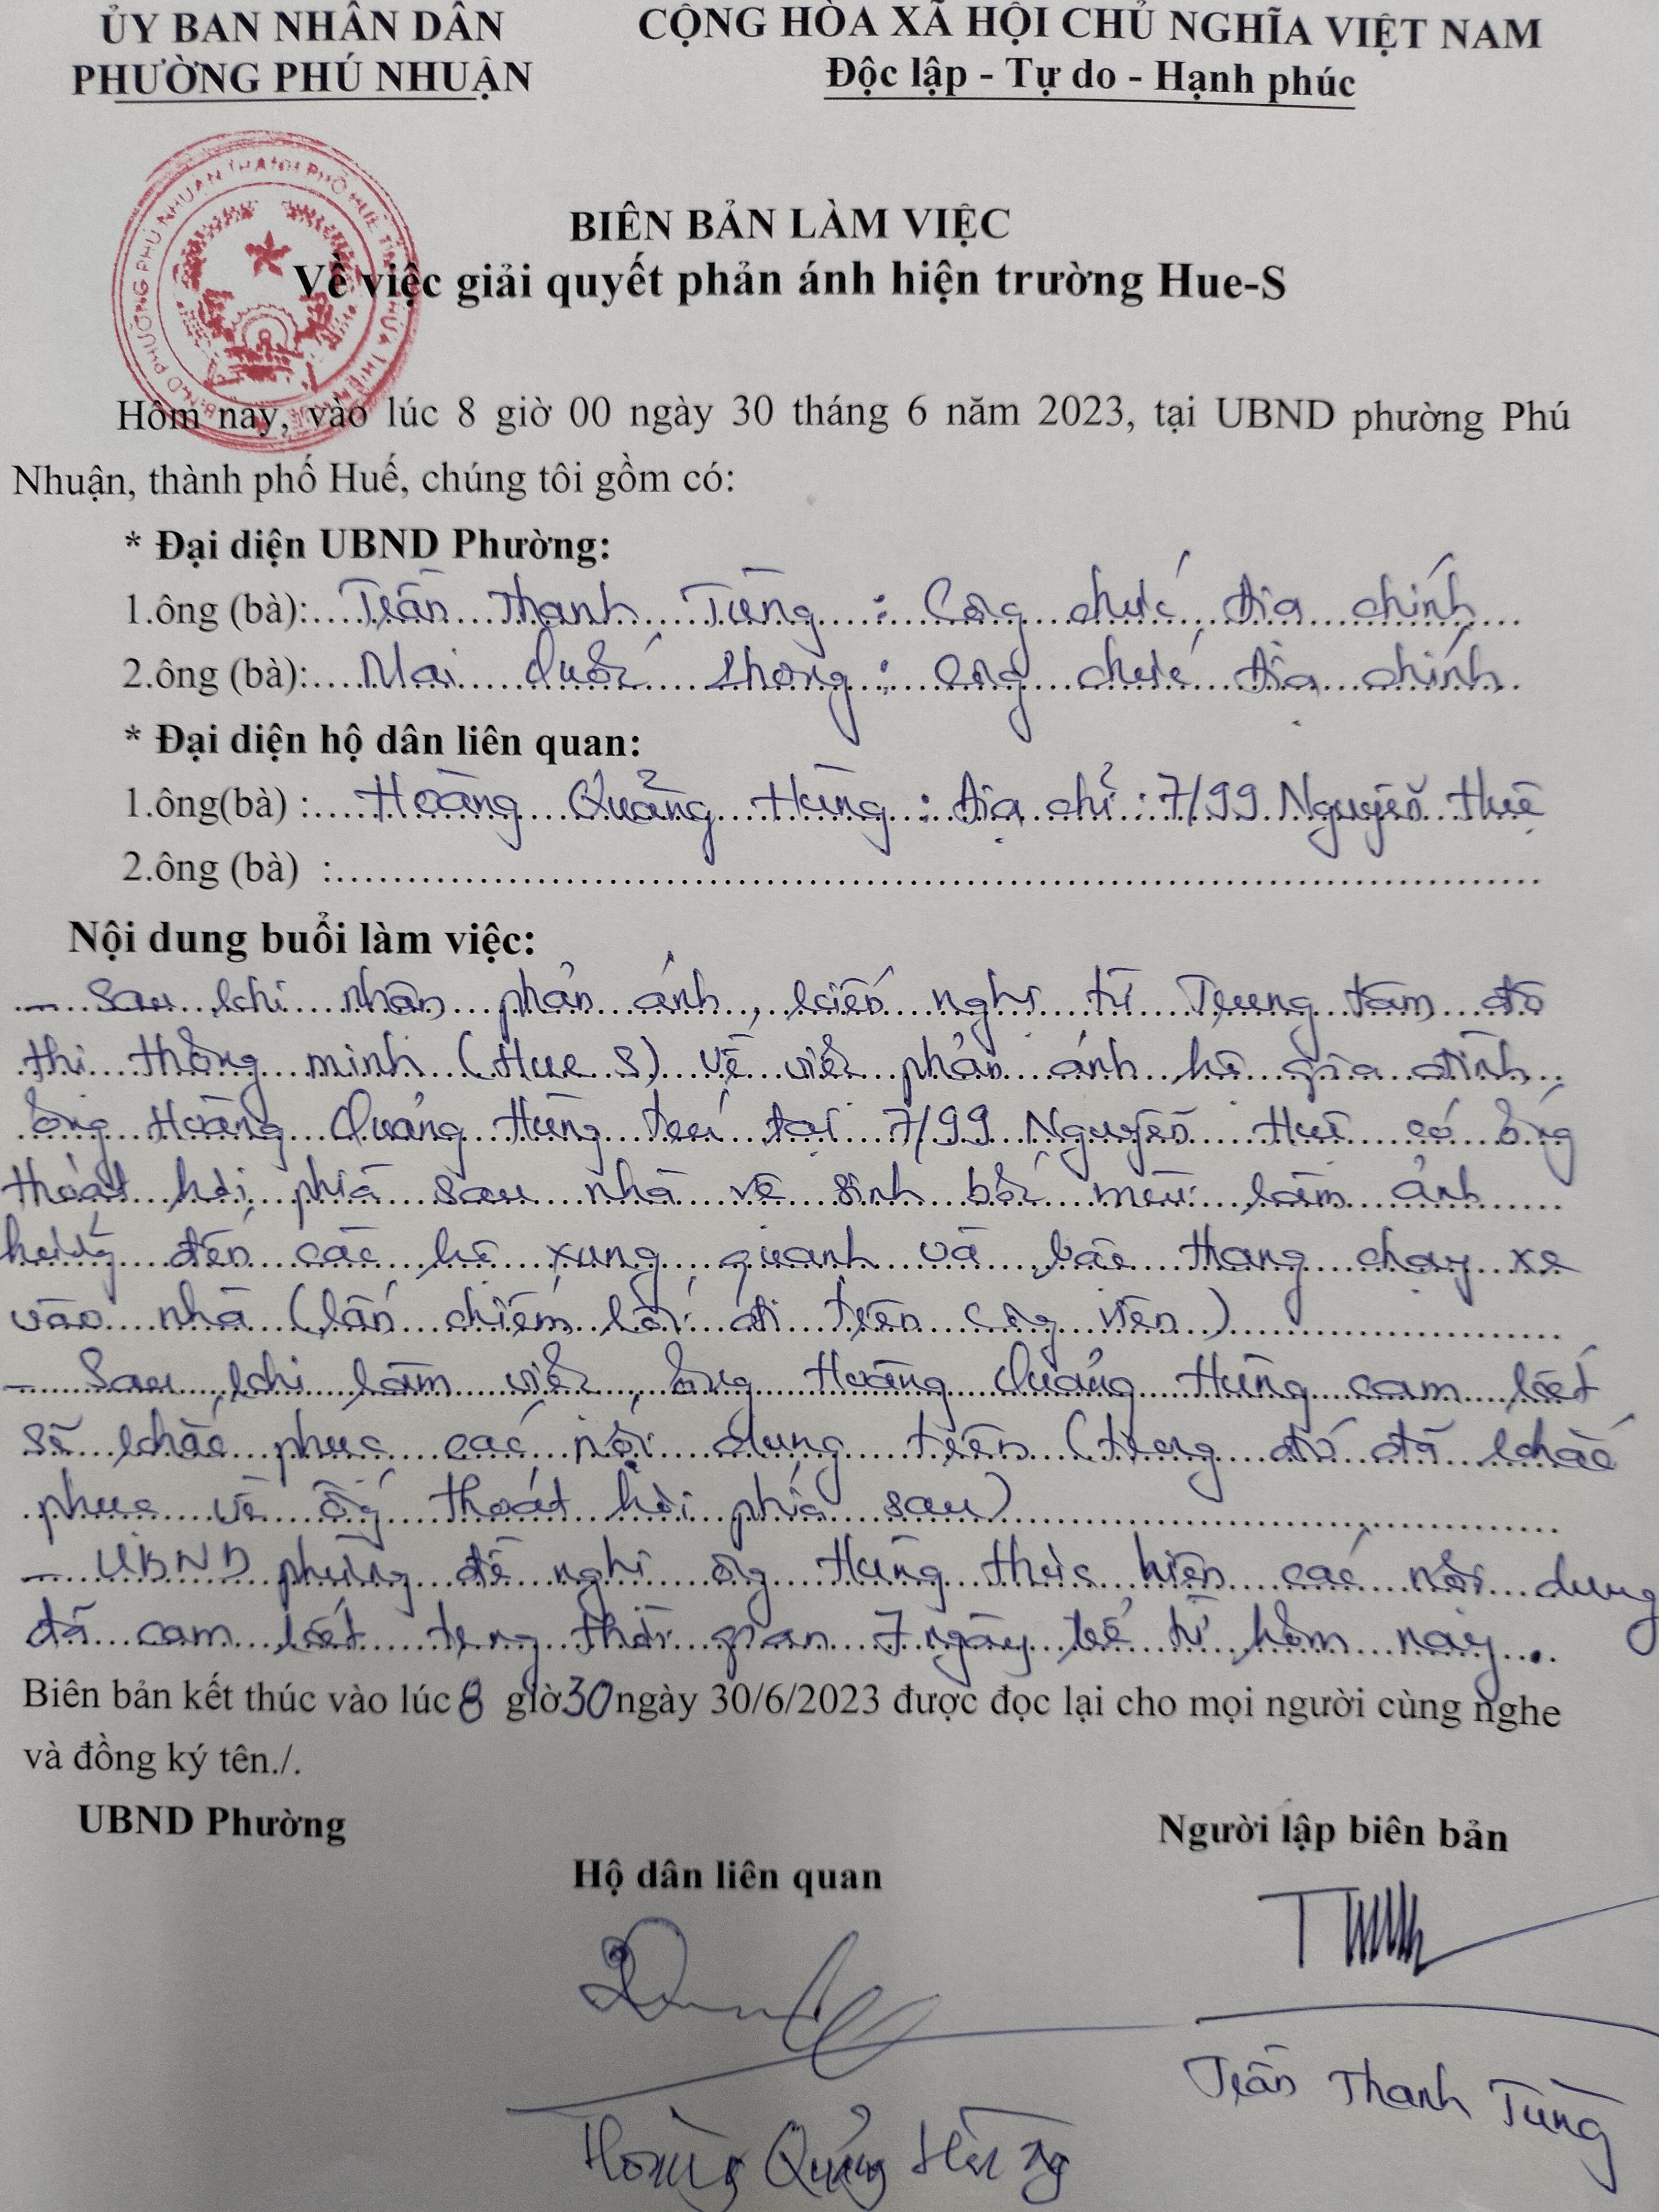 ỦY BAN NHÂN DÂN
PHƯỜNG PHÚ NHUẬN
CỘNG HÒA XÃ HỘI CHỦ NGHĨA VIỆT NAM
Độc lập - Tự do - Hạnh phúc
BIÊN BẢN LÀM VIỆC
Về việc giải quyết phản ánh hiện trường Hue-S
Hôm nay, vào lúc 8 giờ 00 ngày 30 tháng 6 năm 2023, tại UBND phường Phú
Nhuận, thành phố Huế, chúng tôi gồm có:
* Đại diện UBND Phường:
1.ông (bà):....Trần Thanh Tùng : Công chức địa chính
2.ông (bà):....Mai Quốc : Công chức địa chính
* Đại diện hộ dân liên quan:
1.ông(bà) :....Hoàng Quảng Hùng : địa chỉ : 7/99 Nguyễn Huệ
2.ông (bà) :....
Nội dung buổi làm việc:
- Sau khi nhận phản ánh, kiến nghị từ Trung tâm đô
thị thông minh (Hue S) về việc phản ánh hộ gia đình
ông Hoàng Quảng Hùng trú tại 7/99 Nguyễn Huệ có ống
thoát hơi phía sau nhà vệ sinh bốc mùi làm ảnh
hưởng đến các hộ xung quanh và bắc thang chạy xe
vào nhà (lấn chiếm lối đi trên công viên)
- Sau khi làm việc, ông Hoàng Quảng Hùng cam kết
sẽ khắc phục các nội dung trên (trong đó đã khắc
phục về ống thoát hơi phía sau)
- UBND phường đề nghị ông Hùng thực hiện các nội dung
đã cam kết trong thời gian 7 ngày kể từ hôm nay.
Biên bản kết thúc vào lúc 8 giờ 30 ngày 30/6/2023 được đọc lại cho mọi người cùng nghe
và đồng ký tên./.
UBND Phường
Người lập biên bản
Hộ dân liên quan
Trần Thanh Tùng
Hoàng Quảng Hùng